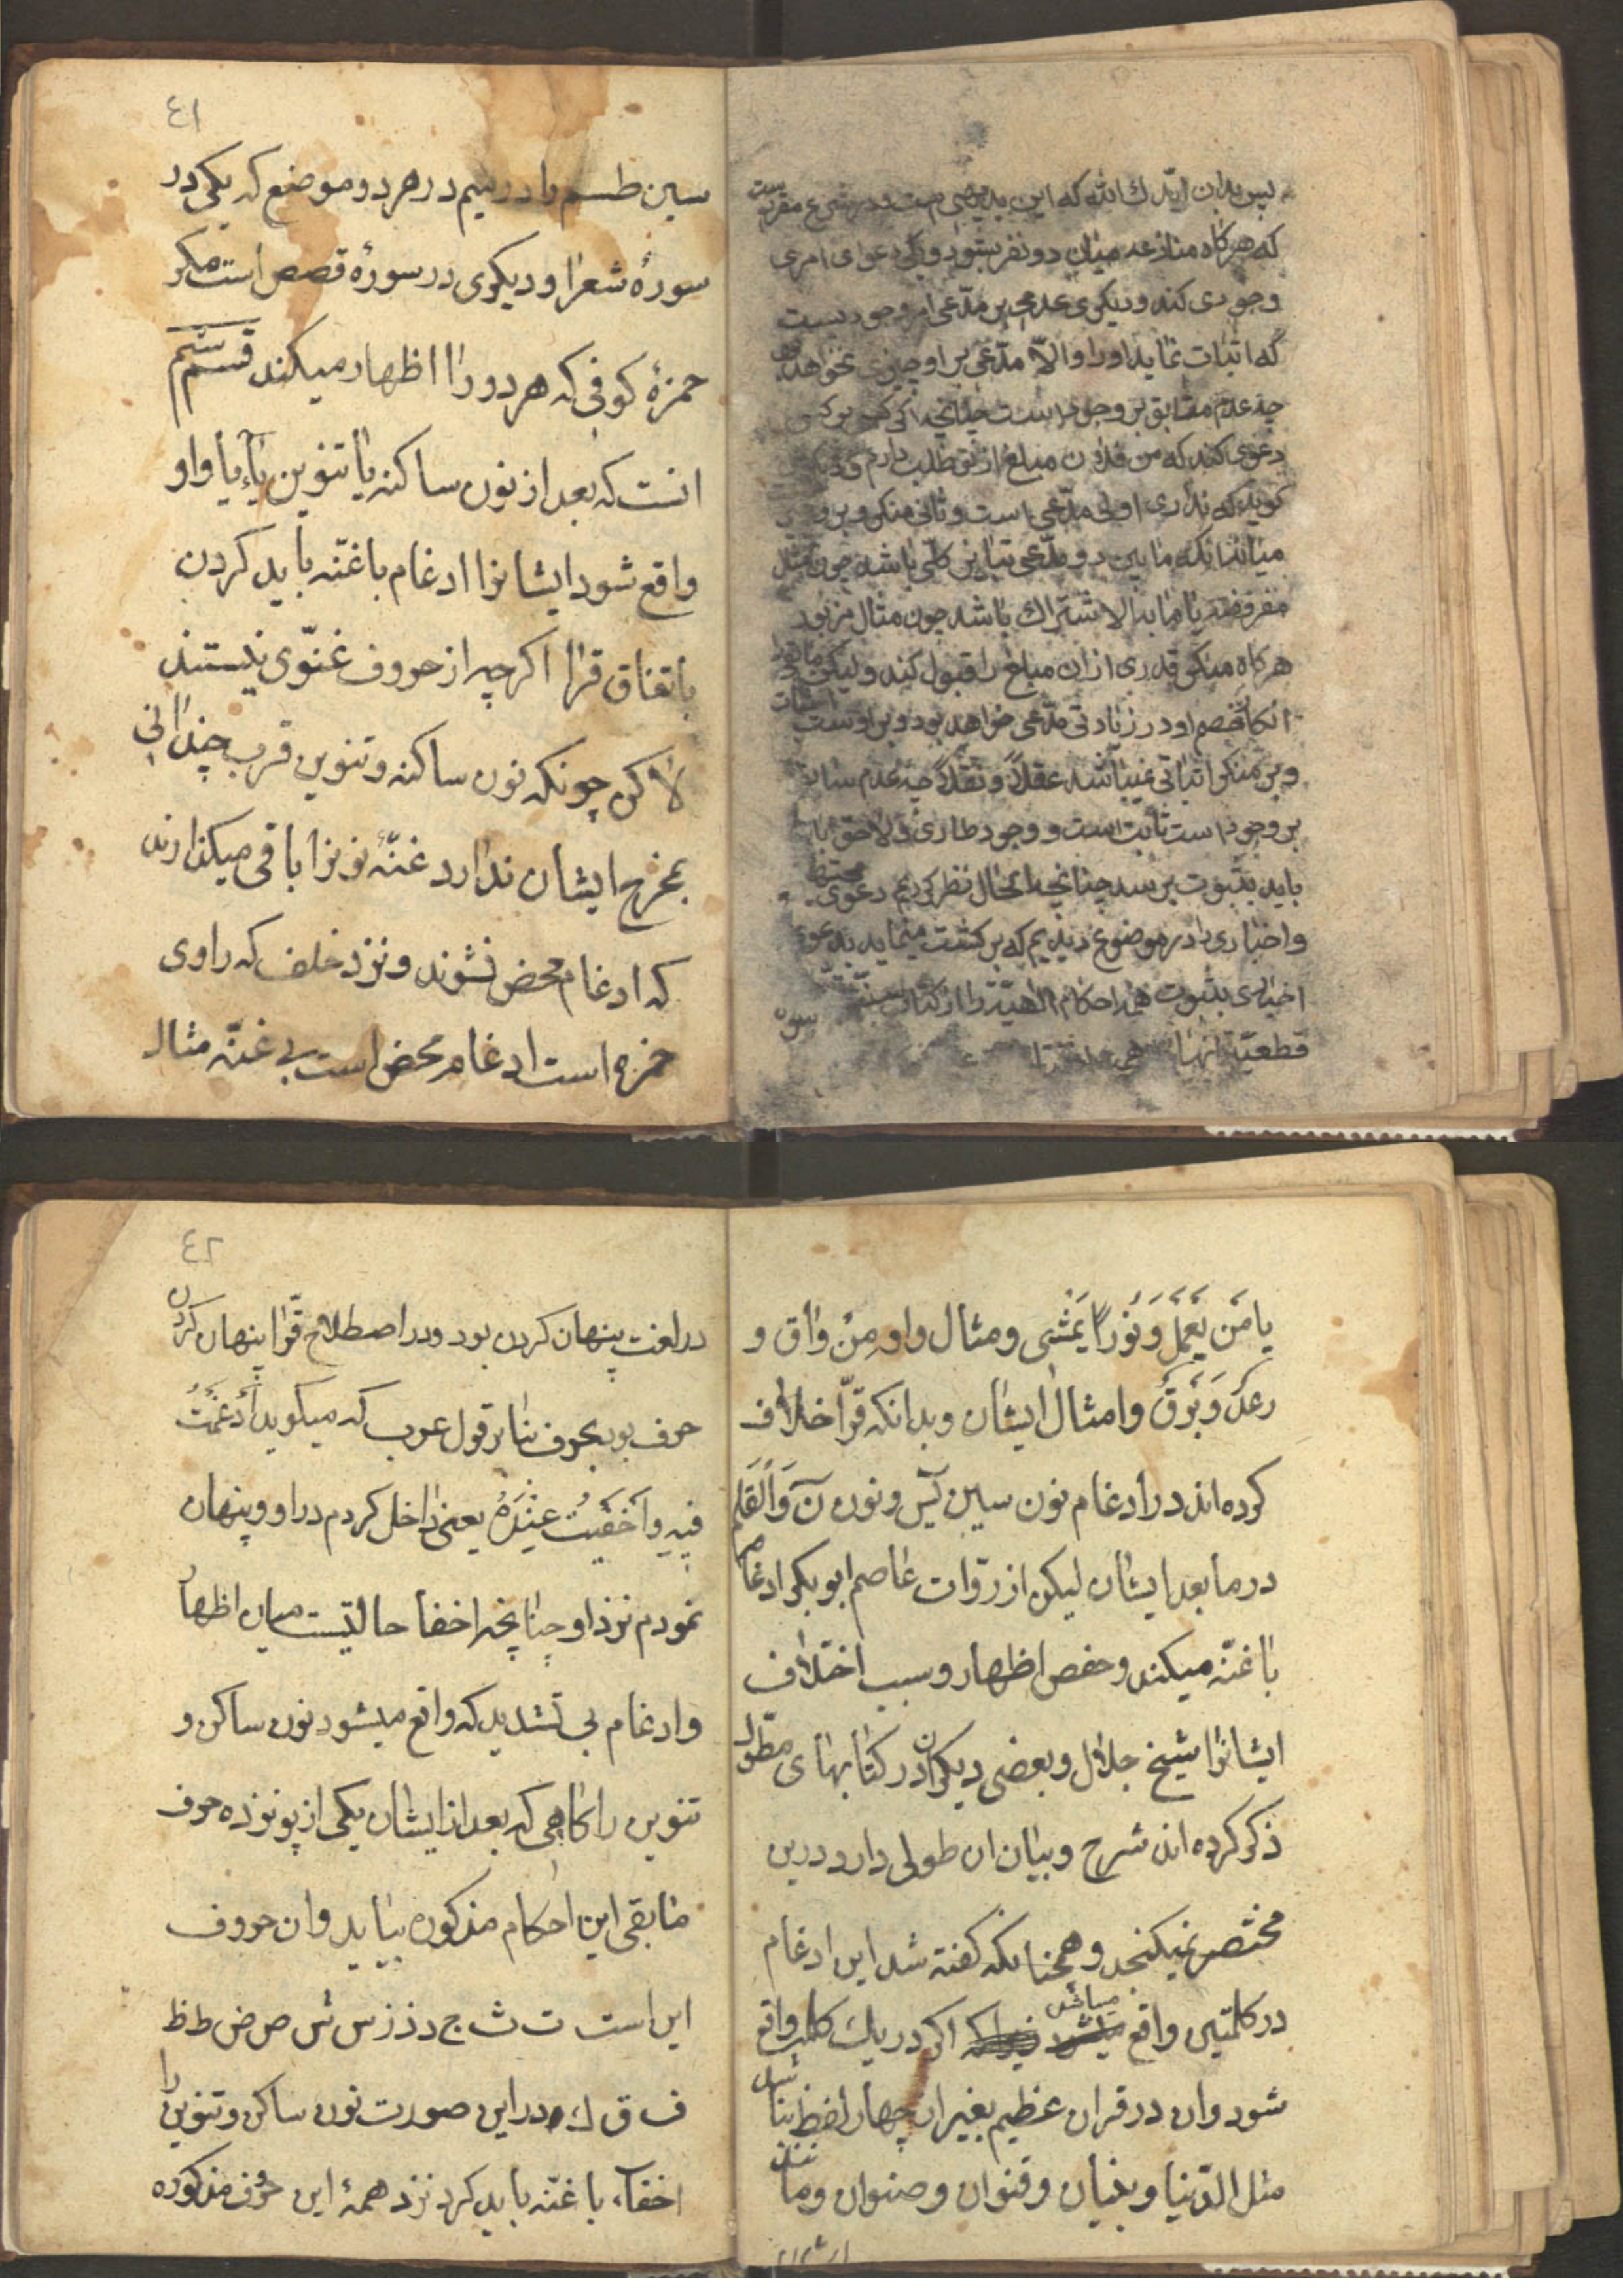 پس بدان ایدك الله که این بدیهی است و در شرع مقرر است
که هرگاه منازعه میان دو نفر بشود و یکی دعوای امری
وجودی کند و دیگری عدمی بر مدعی امر وجودیست
که اثبات نماید او را والا مدعی بر او چیزی نخواهد
چه عدم مقابق بر وجود است چنانچه اگر کسی بر کسی
دعوی کند که من فلان مبلغ از تو طلب دارم و دیگری
گوید که نداری اولی مدعی است و ثانی منکر و بر
میانند آنکه مابین دو مدعی تباین کلی باشد چون مثل
مفروضه یا ما به الاشتراك باشد چون مثال مزبور
هرگاه منکر قدری از ان مبلغ را قبول کند ولیکن
انگاه خصم او در زیادتی مدعی خواهد بود و بر اوست اثبات
و بر منکر اثباتی نمیباشد عقلاً و نقلاً چه عدم سابق
بر وجود است ثابت است و وجود طاری و لاحق
باید بثبوت برسد چنانچه الحال نظر کردیم دعوی مجتهد
و اخباری در موضوع دیدیم که برگشت مینماید بدعوی
اخباری بثبوت همه احکام الهیه را از کتاب
قطعیة
٤١
سین طسم را در میم در هر دو موضع که یکی در
سورهٔ شعرا و دیکری در سورهٔ قصص است مکر
حمزهٔ کوفی که هر دو را اظهار میکند قسم ششم
انست که بعد از نون ساکنه یا تنوین یاء یا واو
واقع شود ایشانرا ادغام با غنّه باید کردن
باتفاق قرا اکرچه از حروف غنّوی نیستند
لاکن چونکه نون ساکنه و تنوین قرب چندانی
بمخرج ایشان ندارد غنّهٔ نونرا باقی میکذارند
که ادغام محض نشوند و نزد خلف که راوی
حمزه است ادغام محض است بی غنّه مثال
یا مَن یَعمَل وَ نُوراً یَمْشی و مثال واو مِنْ واق و
رعدٌ وَ بَرقٌ وامثال ایشان و بدانکه قرّا خلاف
کرده اند در ادغام نون سین یٓس و نون نٓ وَالْقَلَم
در ما بعد ایشان لیکن از روّات عاصم ابوبکر ادغام
با غنّه میکند و حفص اظهار و سبب اختلاف
ایشانرا شیخ جلال و بعضی دیکران در کتابهای مطّول
ذکر کرده اند شرح و بیان ان طولی دارد درین
مختصر نمیکنجد و همچنانکه کفته شد این ادغام
در کلمتین واقع میباشد اکر در یك کلمه واقع
شود وان در قران عظیم بغیر از چهار لفظ بنا شد
مثل الدّنیا و بنیان و قنوان و صنوان و ما
٤٢
در لغت پنهان کردن بود و در اصطلاح قّرا پنهان کردن
حرف بود بحرف بنا بر قول عرب که میکوید اَدْغَمْتُ
فیهِ و اَخفَیتُ عِنْدَهُ یعنی داخل کردم در او و پنهان
نمودم نزد او چنانچه اخفا حالتیست میان اظهار
و ادغام بی تشدید که واقع میشود نون ساکن و
تنوین را کاهی که بعد از ایشان یکی از پونزده حرف
مابقی این احکام مذکوره بیاید وان حروف
این است ت ث ج د ذ ز س ش ص ض ط ظ
ف ق ك در این صورت نون ساکن و تنوین را
اخفاء با غنّه باید کرد نزد همهٔ این حرف مذکوره